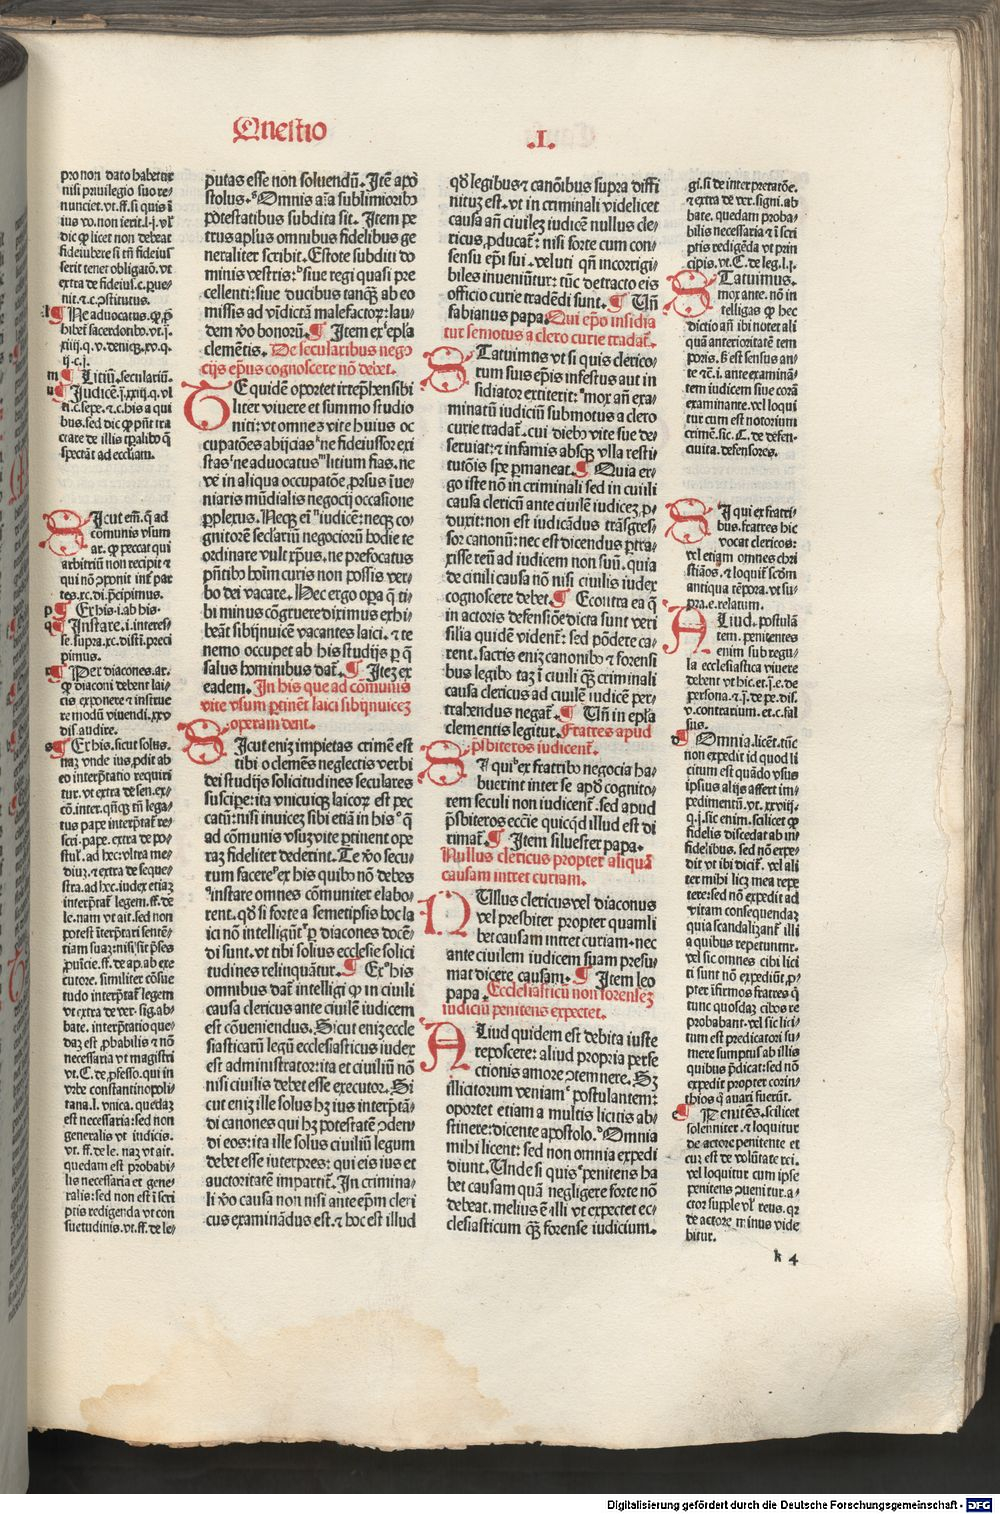 Questio
.I.
pro non dato habetur
nisi priuilegio suo re⸗
nunciet. vt.ff.si quis ĩ
ius vo.non ierit.l.j. vl'
dic ꝙ licet non debeat
fideiubere si tñ fideius
serit tenet obligatõ. vt
extra de fideius.c.ꝑue⸗
nit.⁊.c.ↄstitutus.
l ¶ Ne aduocatus.ꝙ ꝓ
hibet sacerdonibꝰ.vt.j.
iiij.q.v.denicꝫ.xv.q.
ij.c.j.
m ¶ Litiũ.seculariũ.
n ¶ Judicẽ.j.xxiij.q.vl
ti.c.sepe.⁊.c.his a qui
bus.sed dic ꝙ pñt tra
ctare de illis tꝑalibꝰ q̃
spectãt ad ecclãam.
SIcut em̃.q̃ ad
comunis vsum
ar. ꝙ peccat qui
arbitriũ non recipit ⁊
qui nõ ↄponit int̃ par
tes.xc.di.p̃cipimus.
p ¶ Ex his.i.ab his.
q ¶ Instare.i.interes⸗
se.supra.xc.disti.preci
pimus.
r ¶ Per diacones.ar.
ꝙ diaconi debent lai⸗
cis exponere ⁊ instrue
re modũ viuendi.xxv
dis.audire.
s ¶ Ex his.sicut solus.
naꝫ vnde ius.ꝓdit ab
eo interp̃tatio requiri
tur.vt extra de sen.ex⸗
cõ.inter.qñqꝫ tñ lega⸗
tus pape interp̃tat̃ re⸗
scri.pape.extra de po⸗
stul̃.ad hec:vltra me⸗
diuꝫ.⁊ extra de seque⸗
stra.ad hec.iudex etiaꝫ
interp̃tat̃ legem.ff.de
le.nam vt ait.sed non
potest ĩterp̃tari sentẽ⸗
tiam suaꝫ:nisi sit p̃ses
ꝓuĩcie.ff.de ap.ab exe
cutore. similiter cõsue
tudo interp̃tat̃ legem
vt extra de ver.sig.ab⸗
bate. interp̃tatio que⸗
daꝫ est ꝓbabilis ⁊ nõ
necessaria vt magistri
vt.C.de ꝓfesso.qui in
vrbe constantinopoli⸗
tana.l.vnica.quedaꝫ
est necessaria:sed non
generalis vt iudicis.
vt.ff.de le. naꝫ vt ait.
quedam est probabi⸗
lis necessaria et gene⸗
ralis:sed non est ĩ scri
ptis redigenda vt con
suetudinis.vt.ff.de le⸗
putas esse non soluendũ. Jtẽ apꝰ
stolus. Omnis aĩa sublimioribꝰ
potestatibus subdita sit. Jtem pe
trus apl'us omnibus fidelibus ge
neraliter scribit. Estote subditi do
minis vestris: siue regi quasi pre
cellenti:siue ducibus tanqꝫ ab eo
missis ad vĩdictã malefactoꝝ:lau⸗
dem vo bonorũ. ¶ Jtem ex epl'a
clemẽtis. De secularibus nego
cijs ep̃us cognoscere nõ debet.
TE quidẽ oportet irrep̃hensibi
liter viuere et summo studio
niti: vt omnes vite huius oc
cupatões abijcias ne fideiussor exi
stas ne aduocatus litium fias. ne
ve in aliqua occupatõe ꝓrsus ĩue⸗
niaris mũdialis negocij occasione
ꝑplexus. Necqꝫ eĩ iudicẽ: neqꝫ co⸗
gnitorẽ secl'ariũ negociorũ hodie te
ordinare vult xp̃us. ne prefocatus
p̃ntibꝰ hoĩm curis non possis ver⸗
bo dei vacare. Hec ergo oꝑa q̃ ti⸗
bi minus cõgruere diximus exhi⸗
beãt sibijnuicẽ vacantes laici. ⁊ te
nemo occupet ab his studijs ꝑ q̃
salus hominibus dat̃. ¶ Jteꝫ ex
eadem. In his que ad cõmunis
vite vsum ꝑtinẽt laici sibijnuiceꝫ
operam dent.
SIcut eniꝫ impietas crimẽ est
tibi o clemẽs neglectis verbi
dei studijs solicitudines seculares
suscipe:ita vnicuiqꝫ laicoꝝ est pec
catũ:nisi inuicez sibi etiã in his q̃
ad cõmunis vsuꝫ vite ꝑtinent ope
raꝫ fideliter dederint. Te vo secu⸗
rum facere ex his quibꝰ nõ debes
instare omnes cõmuniter elabo⸗
rent. qd' si forte a semetipsis hoc la
ici nõ intelligũt ꝑ diacones docẽ⸗
di sunt. vt tibi solius ecclesie solici
tudines relinquãtur. ¶ Ex his
omnibus dat̃ intelligi ꝙ in ciuili
causa clericus ante ciuilẽ iudicem
est cõueniendus. Sicut eniꝫ eccle
siasticarũ legũ ecclesiasticus iudex
est administrator:ita et ciuiliũ nõ
nisi ciuilis debet esse executor. Si
cut eniꝫ ille solus hꝫ ius interp̃tã⸗
di canones qui hꝫ potestatẽ ↄden⸗
di eos: ita ille solus ciuiliũ legum
debet esse interpres: qui eis ius et
auctoritatẽ impartit̃. In crimina⸗
li vo causa non nisi ante ep̃m cleri
cus examinãdus est. ⁊ hoc est illud
qd' legibus ⁊ canõibus supra diffi
nituꝫ est. vt in criminali videlicet
causa añ ciuileꝫ iudicẽ nullus cle⸗
ricus ꝓducat̃: nisi forte cum con⸗
sensu ep̃i sui. veluti qñ incorrigi⸗
biles inueniũtur: tũc detracto eis
officio curie tradẽdi sunt. ¶ Vñ
fabianus papa. Qui ep̃o insidia
tur semotus a clero curie tradat̃.
STatuimus vt si quis clerico⸗
rum suis ep̃is infestus aut in
sidiator extiterit: mox añ exa⸗
minatũ iudiciũ submotus a clero
curie tradat̃. cui diebꝰ vite sue de⸗
seruiat: ⁊ infamis absqꝫ vlla resti
tutõis spe ꝑmaneat. ¶ Quia er⸗
go iste nõ in criminali sed in ciuili
causa clericũ ante ciuilẽ iudiceꝫ ꝓ⸗
duxit: non est iudicãdus trãsgres⸗
sor canonũ: nec est dicendus ꝑtra⸗
xisse reũ ad iudicem non suũ. quia
de ciuili causa nõ nisi ciuilis iudex
cognoscere debet. ¶ Econtra ea q̃
in actoris defensiõe dicta sunt veri
similia quidẽ vident̃: sed põdere ca⸗
rent. sacris eniꝫ canonibꝰ ⁊ forensi
bus legibꝰ taꝫ ĩ ciuili qꝫ criminali
causa clericus ad ciuilẽ iudicẽ per⸗
trahendus negat̃. ¶ Vñ in epl'a
clementis legitur. Fratres apud
p̃sbiteros iudicent̃.
SI qui ex fratribꝰ negocia ha⸗
buerint inter se apd' cognito⸗
rem seculi non iudicent̃. sed apud
p̃sbiteros eccl'ie quicqd illud est di
rimat̃. ¶ Jtem siluester papa.
Nullus clericus propter aliquã
causam intret curiam.
NUllus clericus vel diaconus
vel presbiter propter quamli
bet causam intret curiam. nec
ante ciuilem iudicem suam presu⸗
mat dicere causam. ¶ Jtem leo
papa. Ecclesiasticũ non forenseꝫ
iudiciũ penitens expectet.
ALiud quidem est debita iuste
reposcere: aliud propria perfe
ctionis amore ↄtemnere. Sꝫ
illicitorum veniam postulantem:
oportet etiam a multis licitis ab⸗
stinere: dicente apostolo. Omnia
mihi licent: sed non omnia expedi
diunt. Unde si quis penitens ha
bet causam quã negligere forte nõ
debeat. melius ẽ illi vt expectet ec⸗
clesiasticum qꝫ forense iudicium.
gi.si de interpretatõe.
⁊ extra de ver.signi.ab
bate. quedam proba⸗
bilis necessaria ⁊ ĩ scri
ptis redigẽda vt prin
cipis.vt.C.de leg.l.j.
STatuimus.
mox ante. nõ in
telligas ꝙ hec
dictio añ ibi notet ali
quã anterioritatẽ tem
poris.s̃ est sensus an⸗
te ⁊c̃.i. ante examinã⸗
tem iudicem siue corã
examinante.vel loqui
tur cum est notorium
crimẽ.sic.C.de defen⸗
ciuita.defensores.
SI qui ex fratri⸗
bus.fratres hic
vocat clericos:
vel etiam omnes chri
stiãos.⁊ loquit̃ scdm
antiqua tẽpora.vt su⸗
pra.e.relatum.
ALiud.postulã
tem.penitentes
enim sub regu⸗
la ecclesiastica viuere
debent vt hic.et.j.e.de
persona.⁊.q̃.de pe.dis.
v.contrarium.et.c.fal
sus.
d ¶ Omnia.licẽt.tũc
non expedit id quod li
citum est quãdo vsus
ipsius alijs affert im⸗
pedimentũ.vt.xxviij.
q.j.sic enim.scilicet ꝙ
fidelis discedat ab in
fidelibus. sed nõ expe⸗
dit vt ibi dicit̃. vel ali
ter mihi licꝫ mea repe
tere:sed nõ expedit ad
vitam consequendaꝫ
quia scandalizant̃ illi
a quibus repetuntur.
vel sic omnes cibi lici
ti sunt nõ expediũt.ꝓ⸗
pter ĩfirmos fratres q̃
tunc quosdaꝫ cibos re
probabant.vel sic lici⸗
tum est predicatori su⸗
mere sumptus ab illis
quibus p̃dicat:sed nõ
expedit propter corin⸗
thios q̃ auari fuerũt.
e ¶ Penitẽs.scilicet
solenniter.⁊ loquitur
de actore penitente et
cui est de volũtate rei.
vel loquitur cum ipse
penitens ↄuenitur.a⸗
ctor supple vl' reus.qꝛ
de actore minus vide
bitur.
k 4
Digitalisierung gefördert durch die Deutsche Forschungsgemeinschaft - DFG